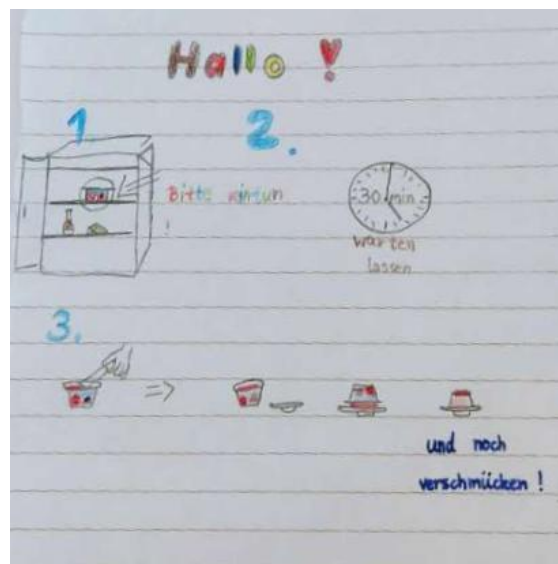 Hallo !
1 2.
Bitte hintun
!
30 min
warten
lassen
3.
und noch
verschmücken !